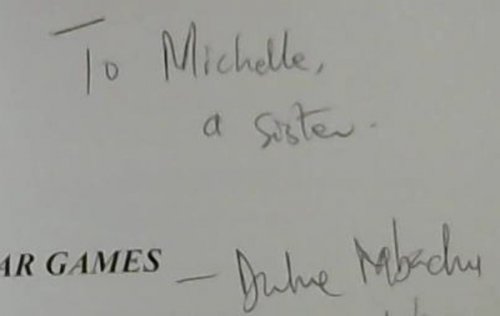 To Michelle,
a sister.
AR GAMES — Duke Mbachu